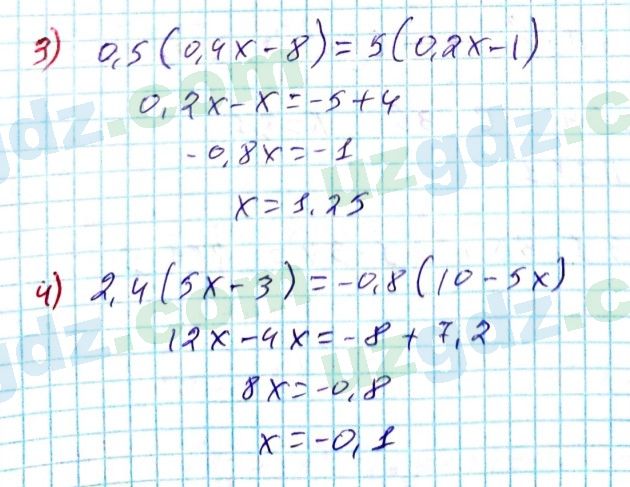 3) 0,5(0,4x-8)=5(0,2x-1)
0,2x-x=-5+4
-0,8x=-1
x=1.25
4) 2,4(5x-3)=-0,8(10-5x)
12x-4x=-8+7,2
8x=-0,8
x=-0,1
uzgdz.com
uzgdz.com
uzgdz.com
uzgdz.com